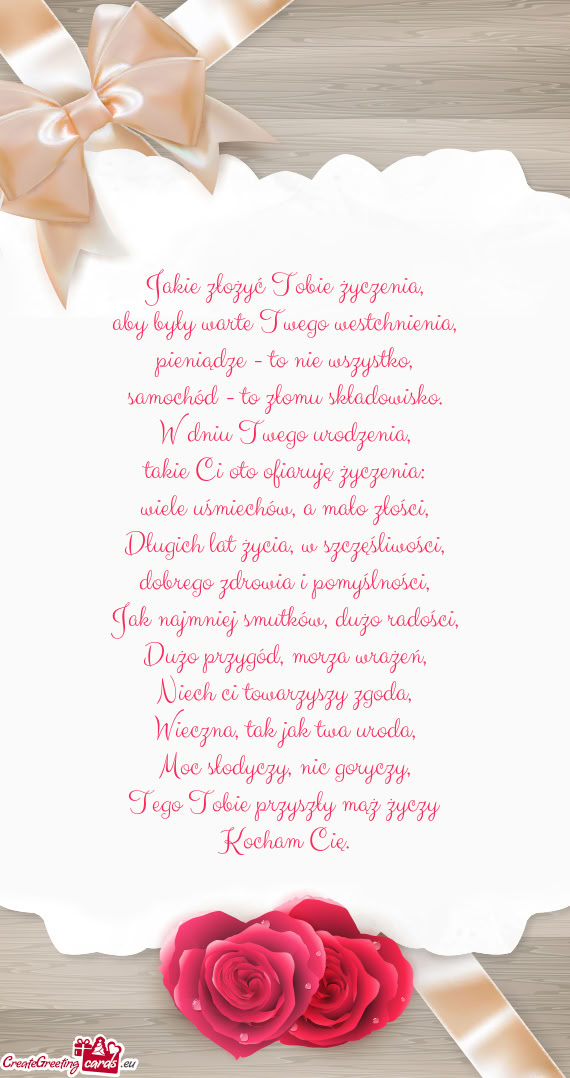 Jakie złożyć Tobie życzenia,
aby były warte Twego westchnienia,
pieniądze - to nie wszystko,
samochód - to złomu składowisko.
W dniu Twego urodzenia,
takie Ci oto ofiaruję życzenia:
wiele uśmiechów, a mało złości,
Długich lat życia, w szczęśliwości,
dobrego zdrowia i pomyślności,
Jak najmniej smutków, dużo radości,
Dużo przygód, morza wrażeń,
Niech ci towarzyszy zgoda,
Wieczna, tak jak twa uroda,
Moc słodyczy, nic goryczy,
Tego Tobie przyszły mąż życzy
Kocham Cię.
CreateGreeting cards .eu